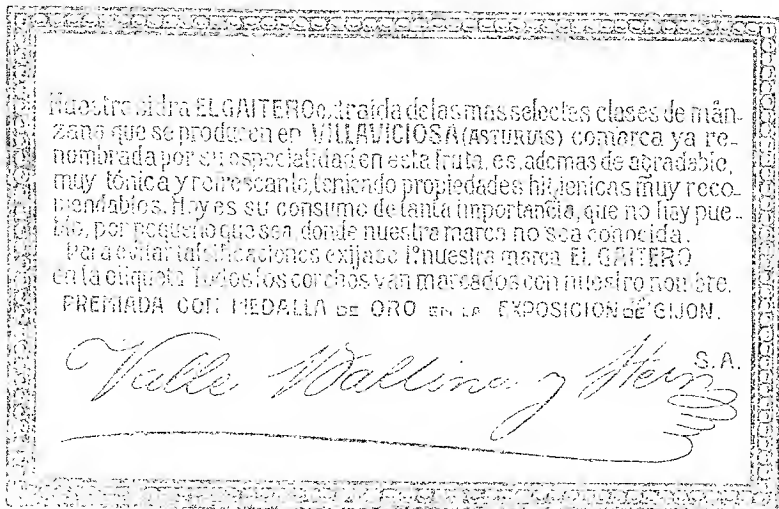 Nuestra sidra EL GAITERO extraida de las mas selectas clases de man-
zana que se producen en VILLAVICIOSA (ASTURIAS) comarca ya re-
nombrada por su especialidad en esta fruta, es, ademas de agradable,
muy tónica y refrescante, teniendo propiedades higienicas muy reco-
mendables. Hoy es su consumo de tanta importancia, que no hay pue-
blo, por pequeño que sea, donde nuestra marca no sea conocida.
Para evitar falsificaciones exijase nuestra marca EL GAITERO
en la etiqueta Todos los corchos van marcados con nuestro nombre.
PREMIADA CON MEDALLA DE ORO EN LA EXPOSICION DE GIJON.
Valle Ballina y
S.A.